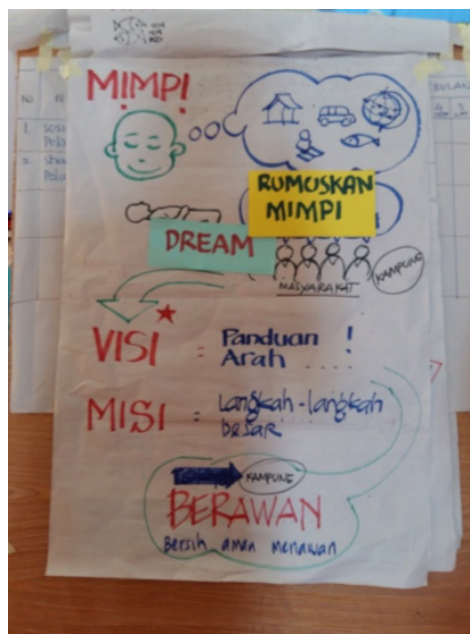 MIMPI
RUMUSKAN
MIMPI
DREAM
MASYARAKAT
KAMPUNG
VISI = Panduan !
Arah ....
MISI = Langkah-langkah
besar
KAMPUNG
BERAWAN
Bersih aman menawan
No
BULAN
1.
2.